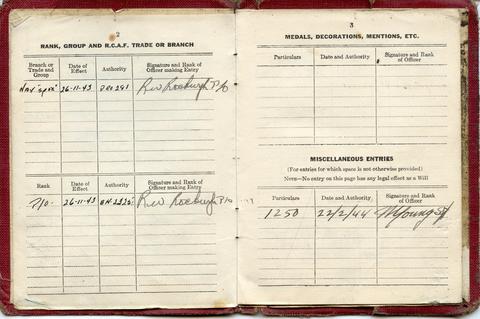 2
RANK, GROUP AND R.C.A.F. TRADE OR BRANCH
Branch or Trade and Group Date of Effect Authority Signature and Rank of Officer making Entry
26-11-43 R.W. Roxburgh P/O
Rank Date of Effect Authority Signature and Rank of Officer making Entry
P/O. 26-11-43 R.W. Roxburgh P/O
3
MEDALS, DECORATIONS, MENTIONS, ETC.
Particulars Date and Authority Signature and Rank of Officer
MISCELLANEOUS ENTRIES
(For entries for which space is not otherwise provided)
NOTE—No entry on this page has any legal effect as a Will
Particulars Date and Authority Signature and Rank of Officer
1250 22/2/44 Young